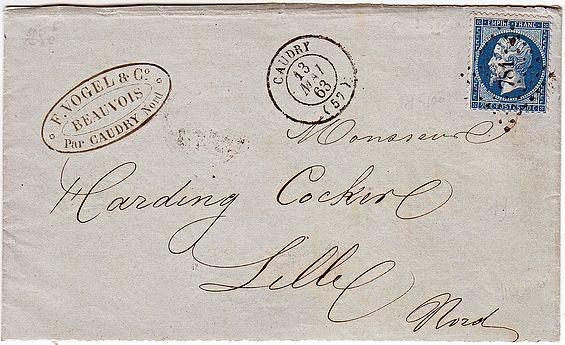 F. VOGEL & Cº
BEAUVOIS
Par CAUDRY Nord
CAUDRY
13
MAI
63
(57)
EMPIRE FRANC
Monsieur
Harding Cocker
Lille
Nord